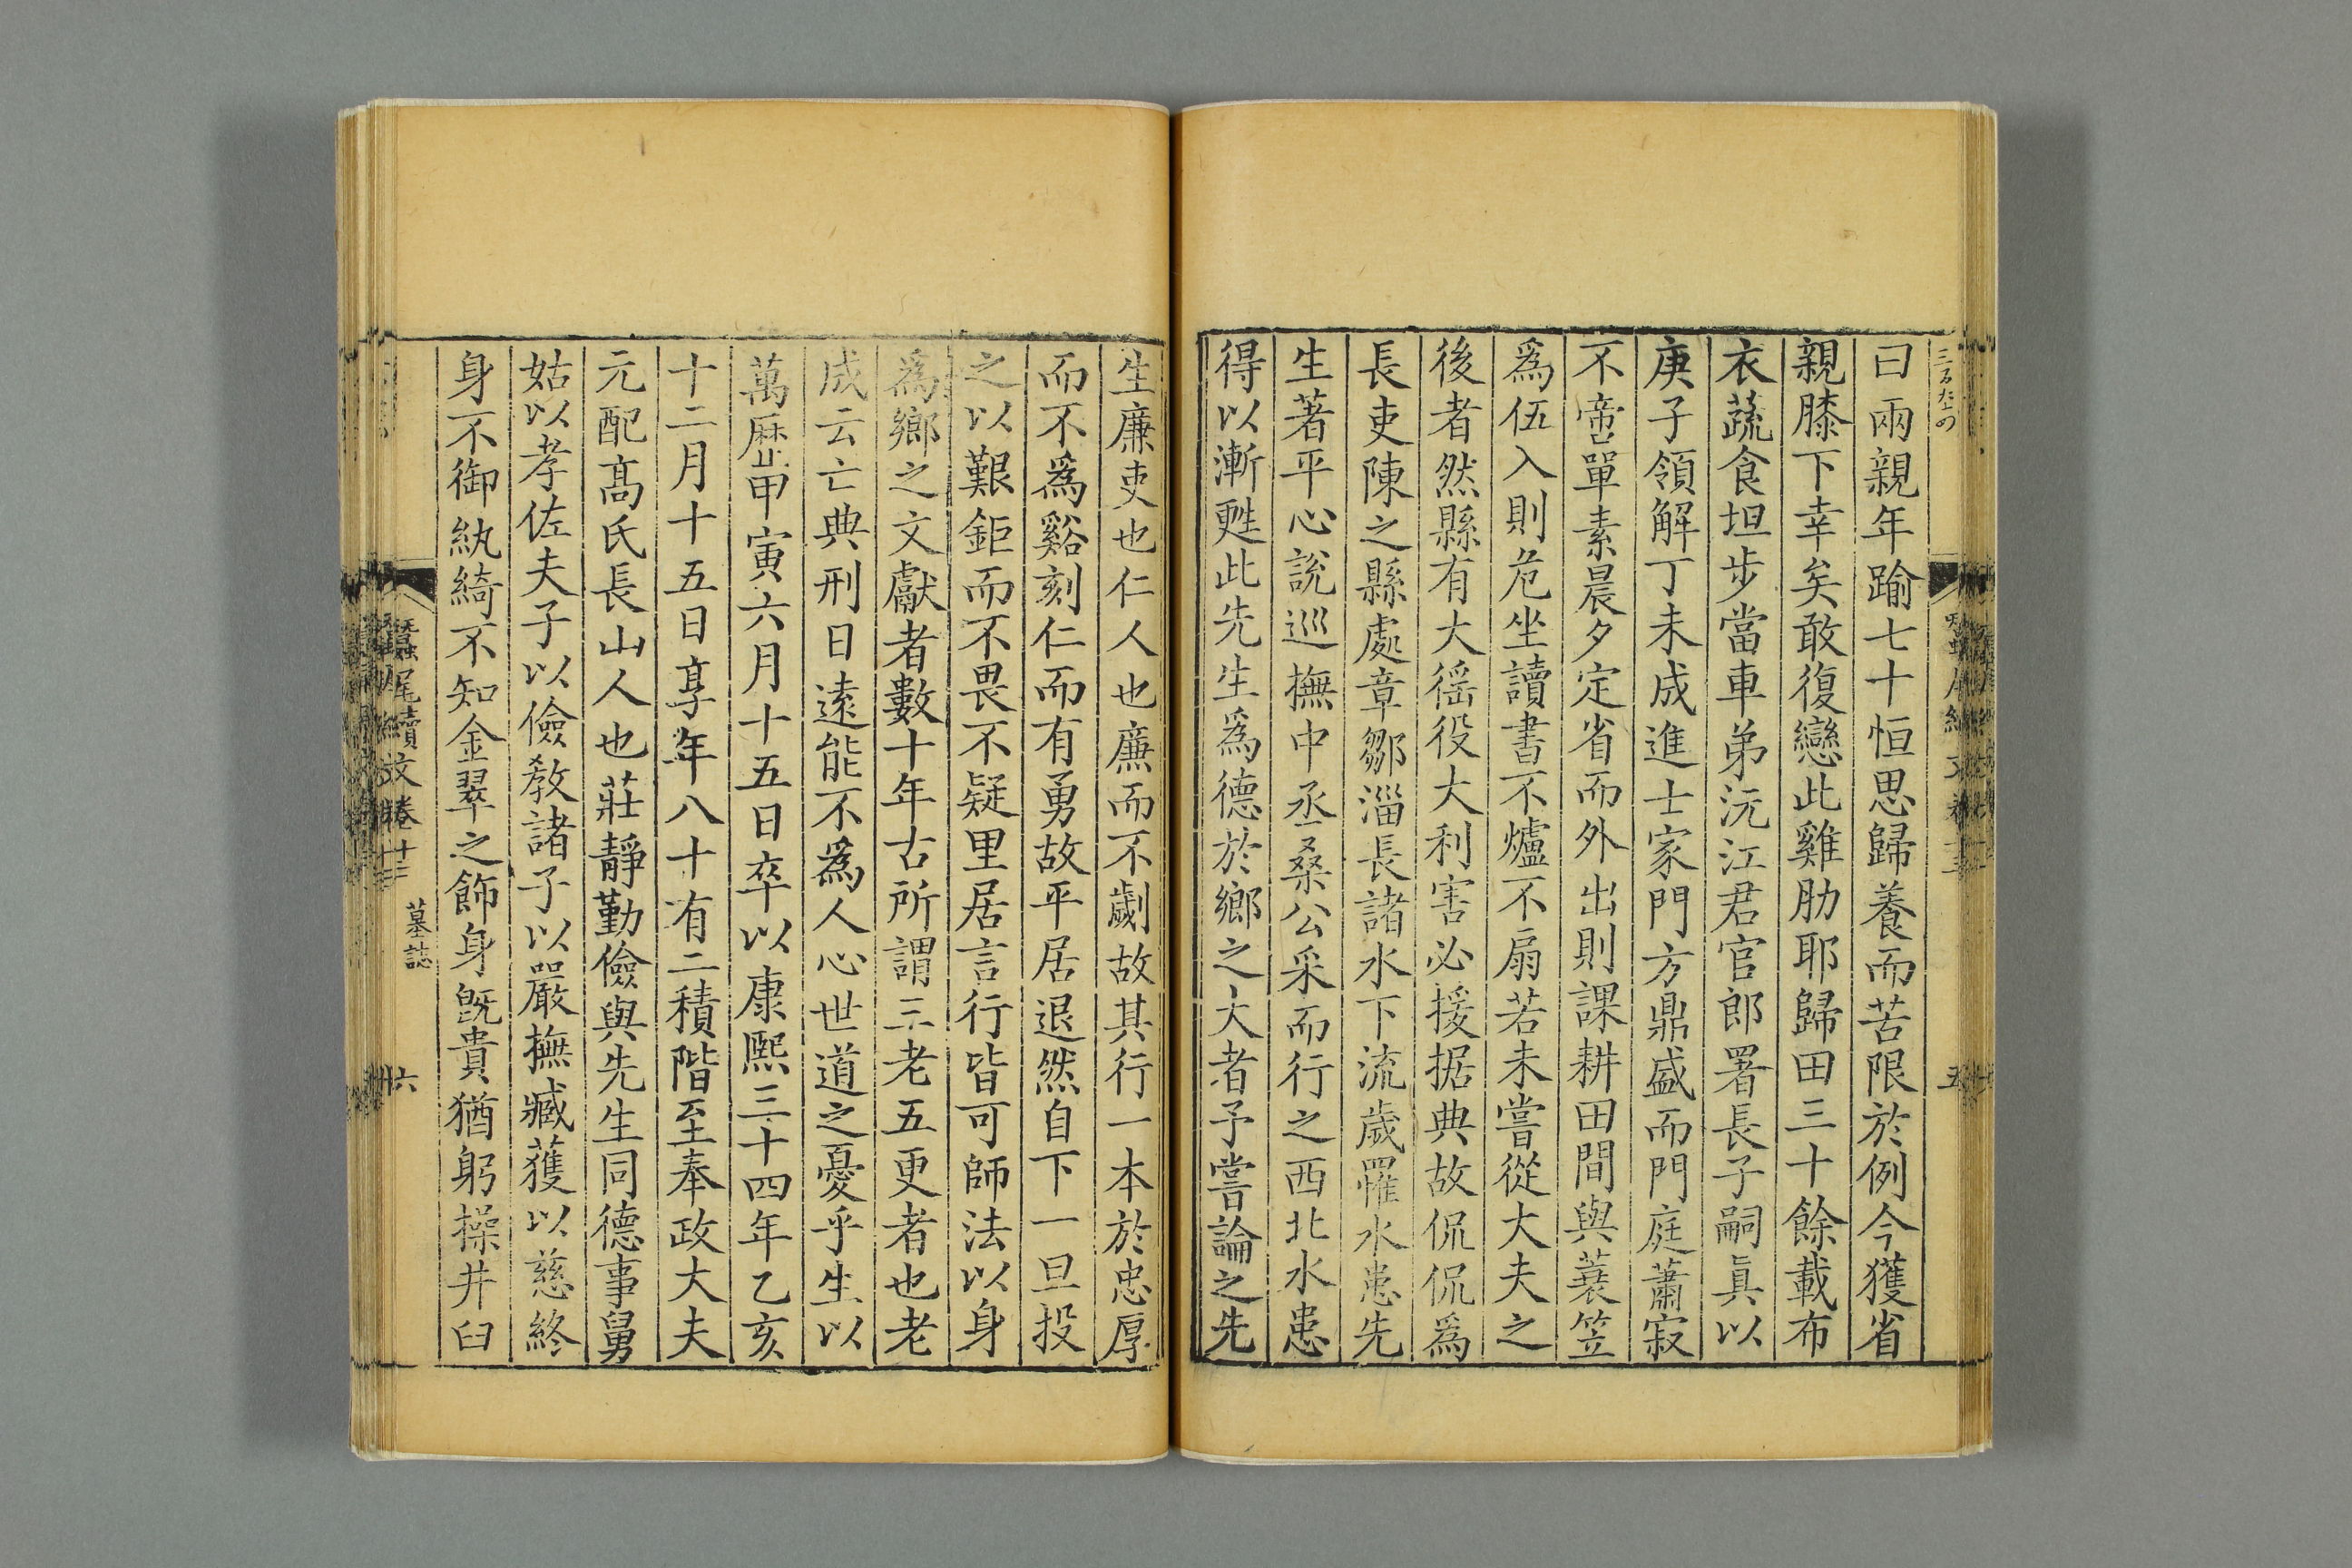 曰兩親年踰七十恒思歸養而苦限於例今獲省
親膝下幸矣敢復戀此雞肋耶歸田三十餘載布
衣蔬食坦步當車弟沅江君官郎署長子嗣眞以
庚子領解丁未成進士家門方鼎盛而門庭蕭寂
不啻單素晨夕定省而外出則課耕田間與蓑笠
爲伍入則危坐讀書不爐不扇若未嘗從大夫之
後者然縣有大徭役大利害必援据典故侃侃爲
長吏陳之縣處章鄒淄長諸水下流歲罹水患先
生著平心說巡撫中丞桑公采而行之西北水患
得以漸甦此先生爲德於鄉之大者予嘗論之先
生廉吏也仁人也廉而不劌故其行一本於忠厚
而不爲谿刻仁而有勇故平居退然自下一旦投
之以艱鉅而不畏不疑里居言行皆可師法以身
爲鄉之文獻者數十年古所謂三老五更者也老
成云亡典刑日遠能不爲人心世道之憂乎生以
萬曆甲寅六月十五日卒以康熙三十四年乙亥
十二月十五日享年八十有二積階至奉政大夫
元配高氏長山人也莊靜勤儉與先生同德事舅
姑以孝佐夫子以儉教諸子以嚴撫臧獲以慈終
身不御紈綺不知金翠之飾身旣貴猶躬操井臼
蠶尾續文卷十三 墓誌 六